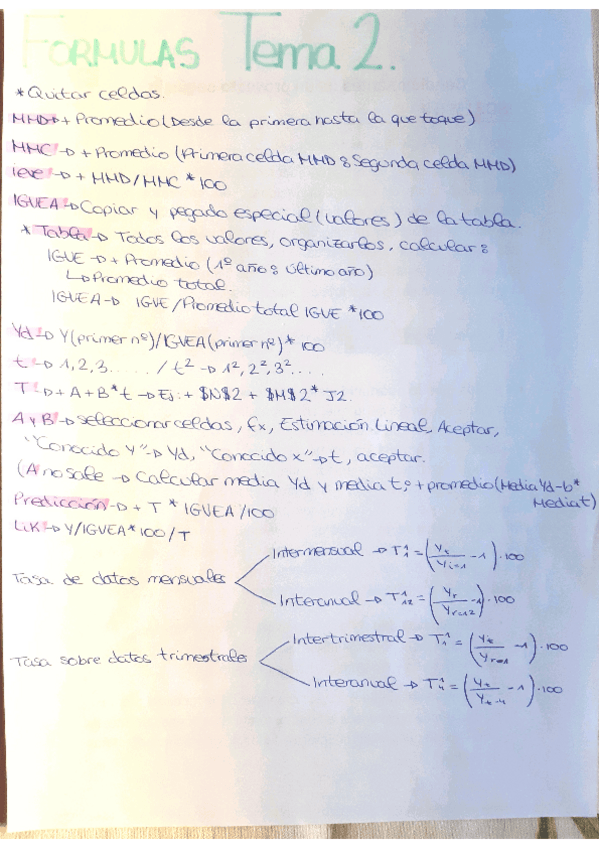 FORMULAS Tema 2.
* Quitar celdas.
MMD → + Promedio (Desde la primera hasta la que toque)
MMC → + Promedio (Primera celda MMD : Segunda celda MMD)
ieve → + MMD/MMC * 100
IGVEA → Copiar y pegado especial (valores) de la tabla.
* Tabla → Todos los valores, organizarlos, calcular:
IGVE → + Promedio (1º año : último año)
↳ Promedio total.
IGVEA → IGVE/Promedio total IGVE * 100
Yd → Y(primer nº)/IGVEA(primer nº) * 100
t → 1, 2, 3 ..... / t² → 1², 2², 3² ....
T → + A + B * t → Ej: + $N$2 + $M$2 * J2.
A y B → seleccionar celdas, fx, Estimación Lineal, Aceptar,
"Conocido Y" → Yd, "Conocido x" → t, aceptar.
(A no sale → Calcular media Yd y media t; + promedio (Media Yd - b * Media t)
Predicción → + T * IGVEA/100
LiK → Y/IGVEA * 100/T
Tasa de datos mensuales
Intermensual → T₁¹ = (Yt/Yt-1 - 1) · 100
Interanual → T₁₂¹ = (Yt/Yt-12 - 1) · 100
Tasa sobre datos trimestrales
Intertrimestral → T₁¹ = (Yt/Yt-1 - 1) · 100
Interanual → T₄¹ = (Yt/Yt-4 - 1) · 100